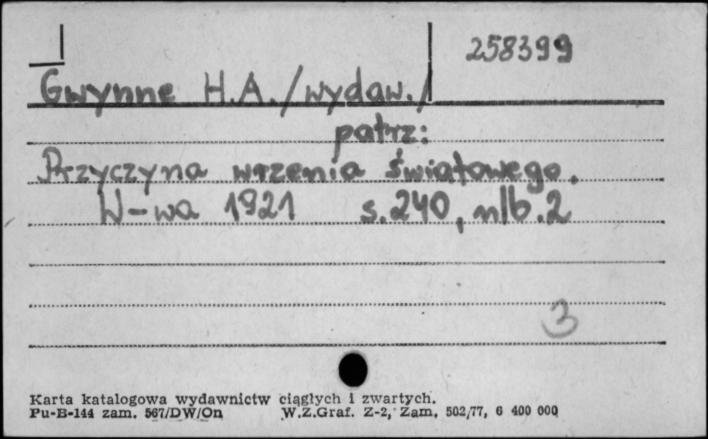 258399
Gwynne H.A. /wydaw./
patrz:
Przyczyna wrzenia światowego.
W-wa 1921 s.240, nlb.2
3
Karta katalogowa wydawnictw ciągłych i zwartych.
Pu-B-144 zam. 567/DW/On W.Z.Graf. Z-2, Zam. 502/77, 6 400 000